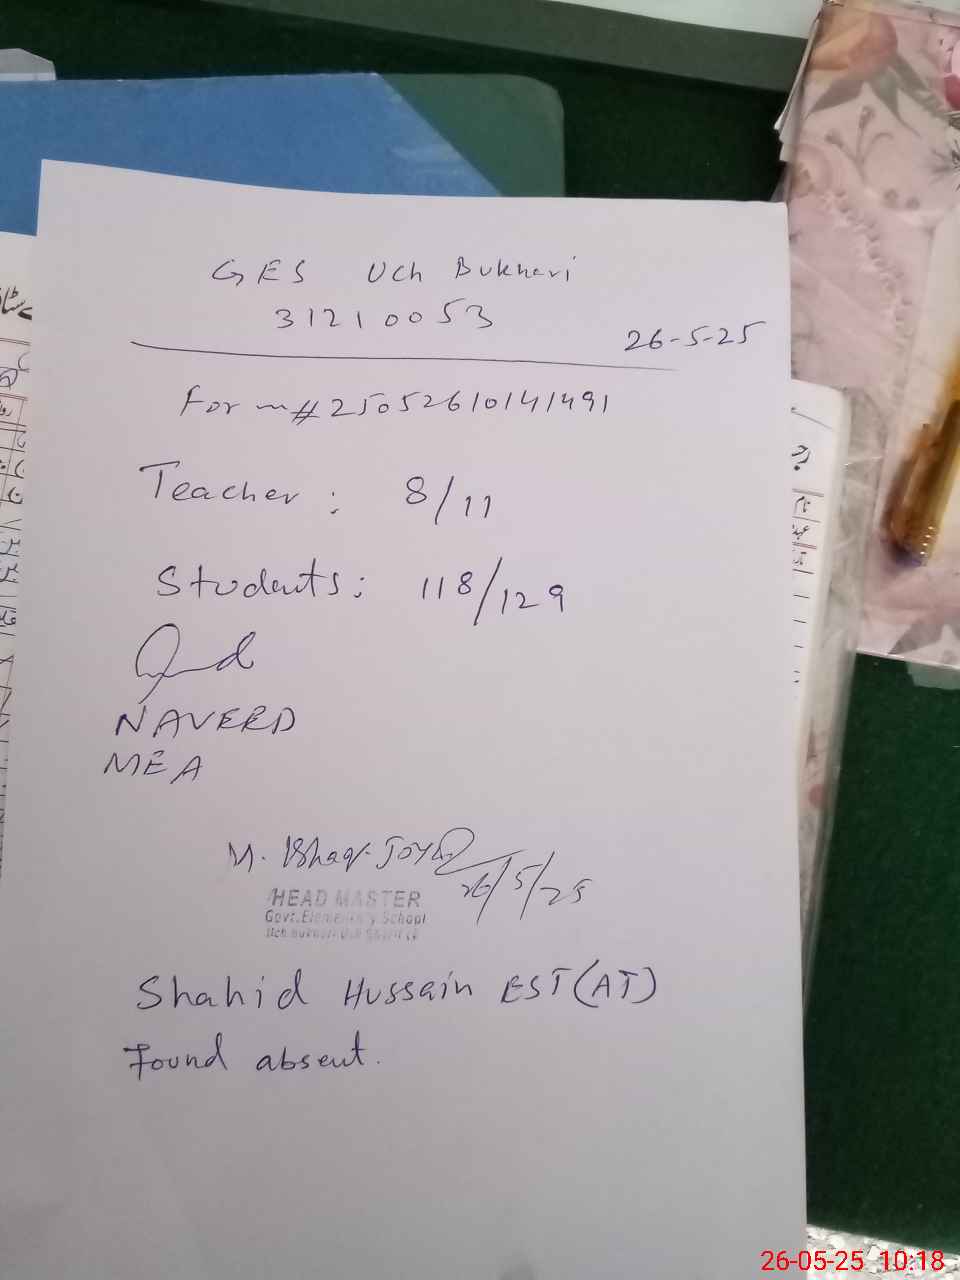 GES Uch Bukhari
31210053
26-5-25
Form # 25052610141491
Teacher : 8/11
Students : 118/129
NAVEED
MEA
M. Ishaq Joya
26/5/25
HEAD MASTER
Govt. Elementary School
Uch Bukhari Uch Sharif
Shahid Hussain EST (AT)
Found absent.
26-05-25 10:18